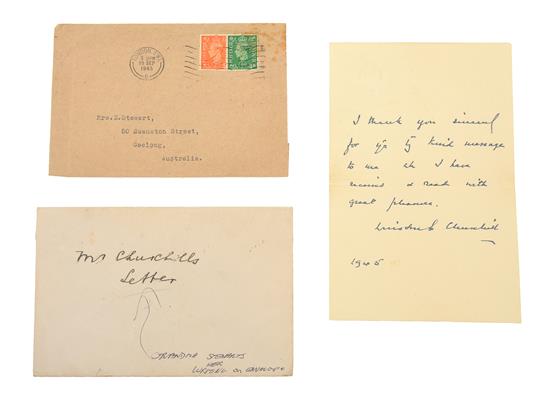 LONDON
19 SEP
1945
Mrs.E.Stewart,
50 Swanston Street,
Geelong,
Australia.
Mr Churchills
Letter
GRANDMA STEWARTS
WRITING ON ENVELOPE
I thank you
for yr kind message
to me wh I have
received & read with
great pleasure.
Winston S. Churchill
1945